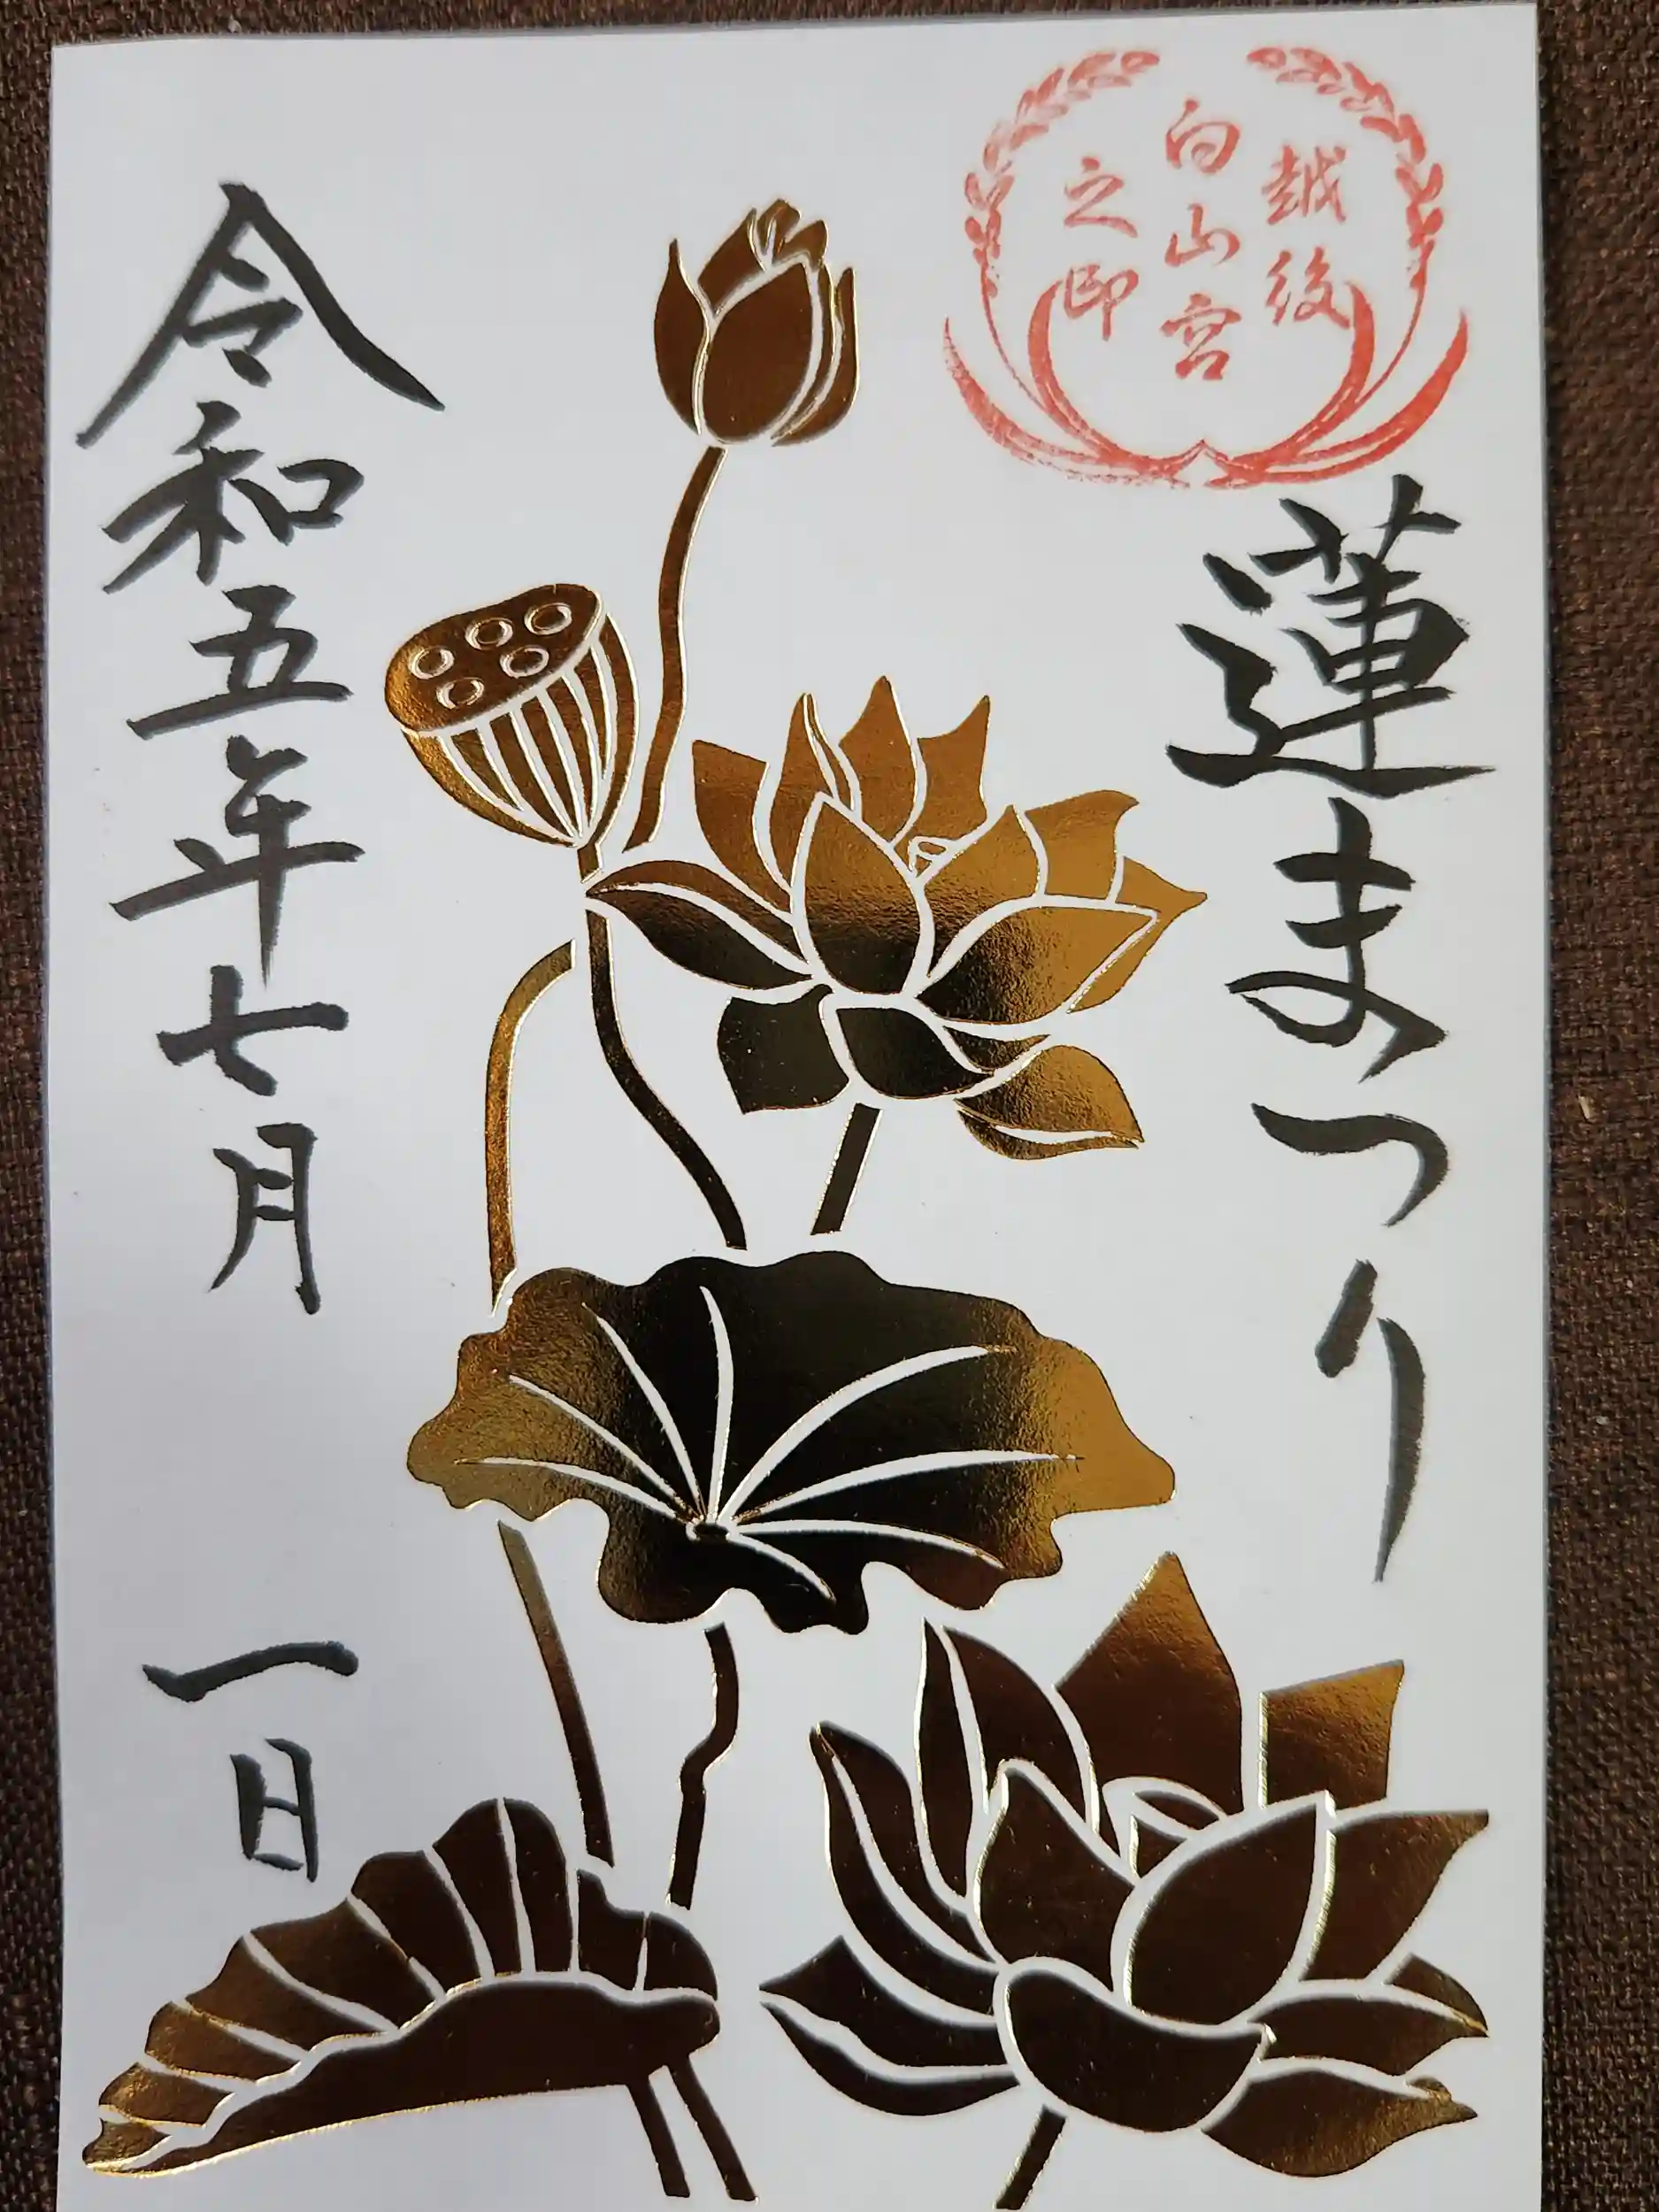 越後
白山宮
之印
蓮まつり
令和五年七月一日